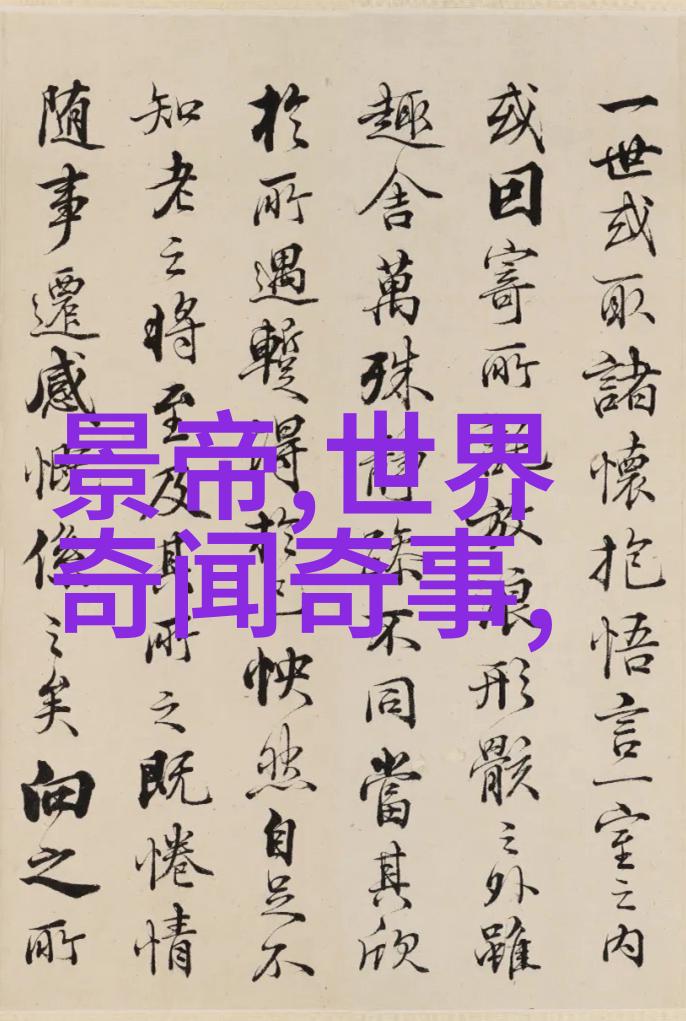 一世或取諸懷抱悟言一室之內
或因寄所託放浪形骸之外雖
趣舍萬殊靜躁不同當其欣
於所遇暫得於己怏然自足不
知老之將至及其所之既惓情
随事遷感慨係之矣向之所
景帝,世界
奇闻奇事,